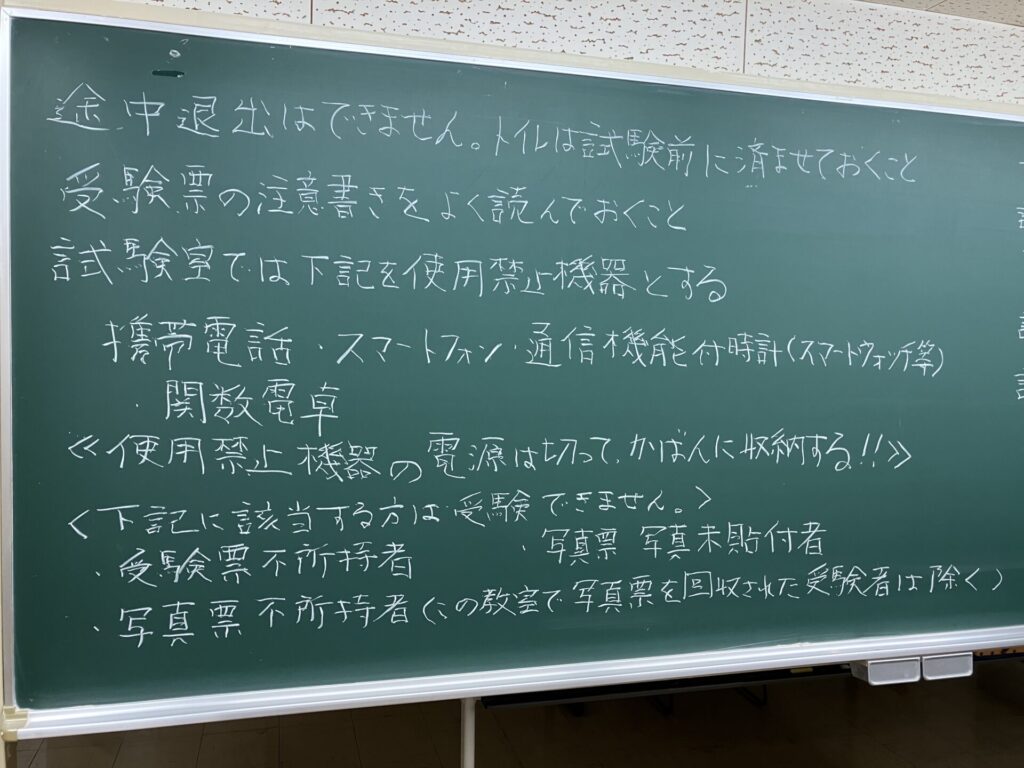 途中退出はできません。トイレは試験前に済ませておくこと
受験票の注意書きをよく読んでおくこと
試験室では下記を使用禁止機器とする
携帯電話・スマートフォン・通信機能付時計(スマートウォッチ等)
・関数電卓
≪使用禁止機器の電源は切って、かばんに収納する!!≫
<下記に該当する方は受験できません。>
・受験票不所持者 ・写真票 写真未貼付者
・写真票不所持者(この教室で写真票を回収された受験者は除く)